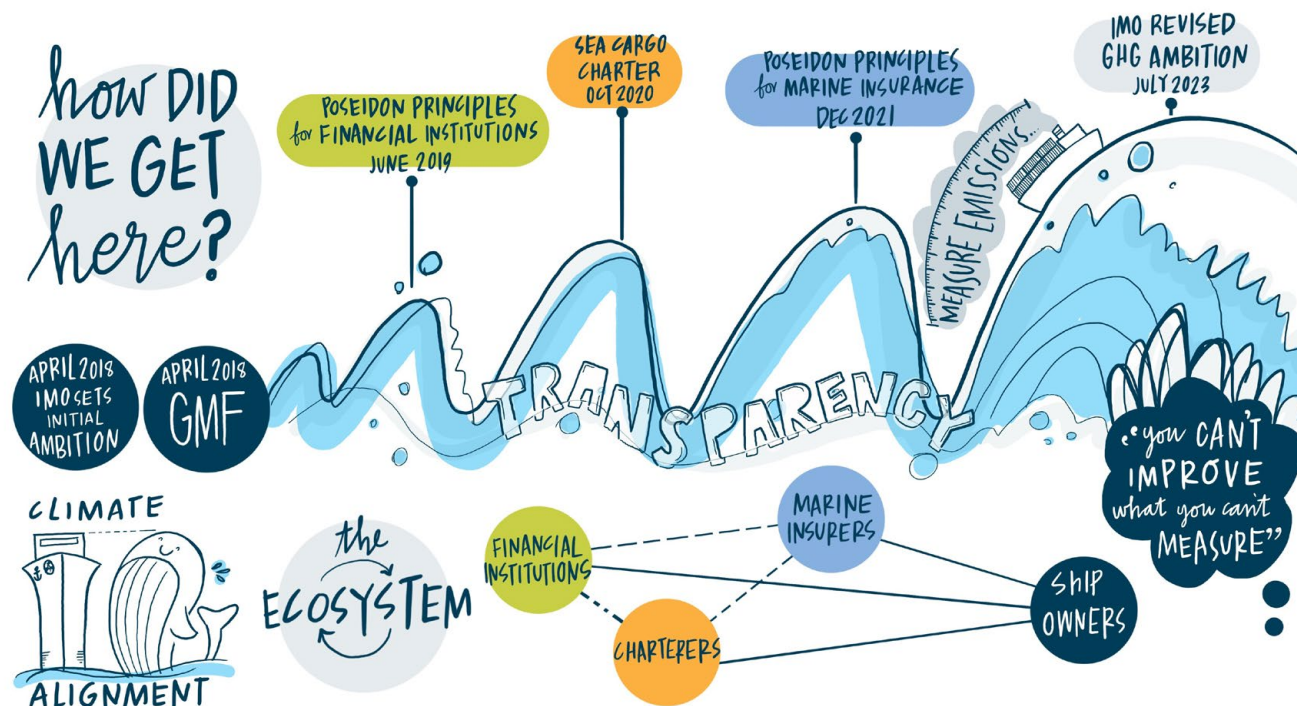 how DID
WE GET
here?
POSEIDON PRINCIPLES
for FINANCIAL INSTITUTIONS
JUNE 2019
SEA CARGO
CHARTER
OCT 2020
POSEIDON PRINCIPLES
for MARINE INSURANCE
DEC 2021
IMO REVISED
GHG AMBITION
JULY 2023
MEASURE EMISSIONS...
APRIL 2018
IMO SETS
INITIAL
AMBITION
APRIL 2018
GMF
TRANSPARENCY
"you CAN'T
IMPROVE
what you can't
MEASURE"
CLIMATE
ALIGNMENT
the
ECOSYSTEM
FINANCIAL
INSTITUTIONS
MARINE
INSURERS
CHARTERERS
SHIP
OWNERS